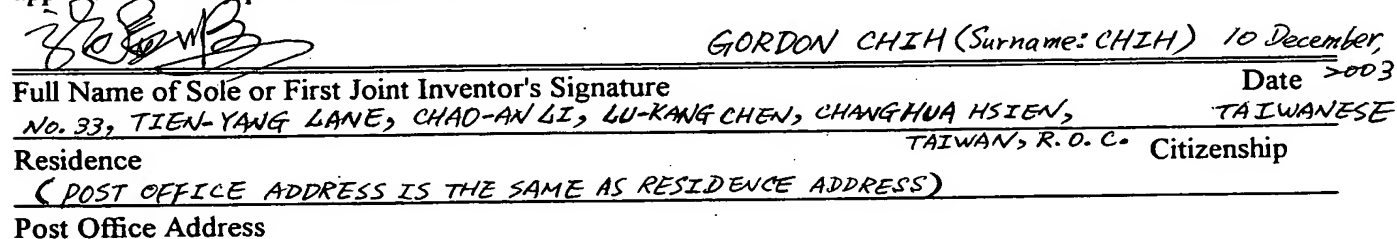 GORDON CHIH (Surname: CHIH) 10 December, 2003
Full Name of Sole or First Joint Inventor's Signature Date
No. 33, TIEN-YANG LANE, CHAO-AN LI, LU-KANG CHEN, CHANGHUA HSIEN, TAIWANESE
TAIWAN, R.O.C.
Residence Citizenship
(POST OFFICE ADDRESS IS THE SAME AS RESIDENCE ADDRESS)
Post Office Address